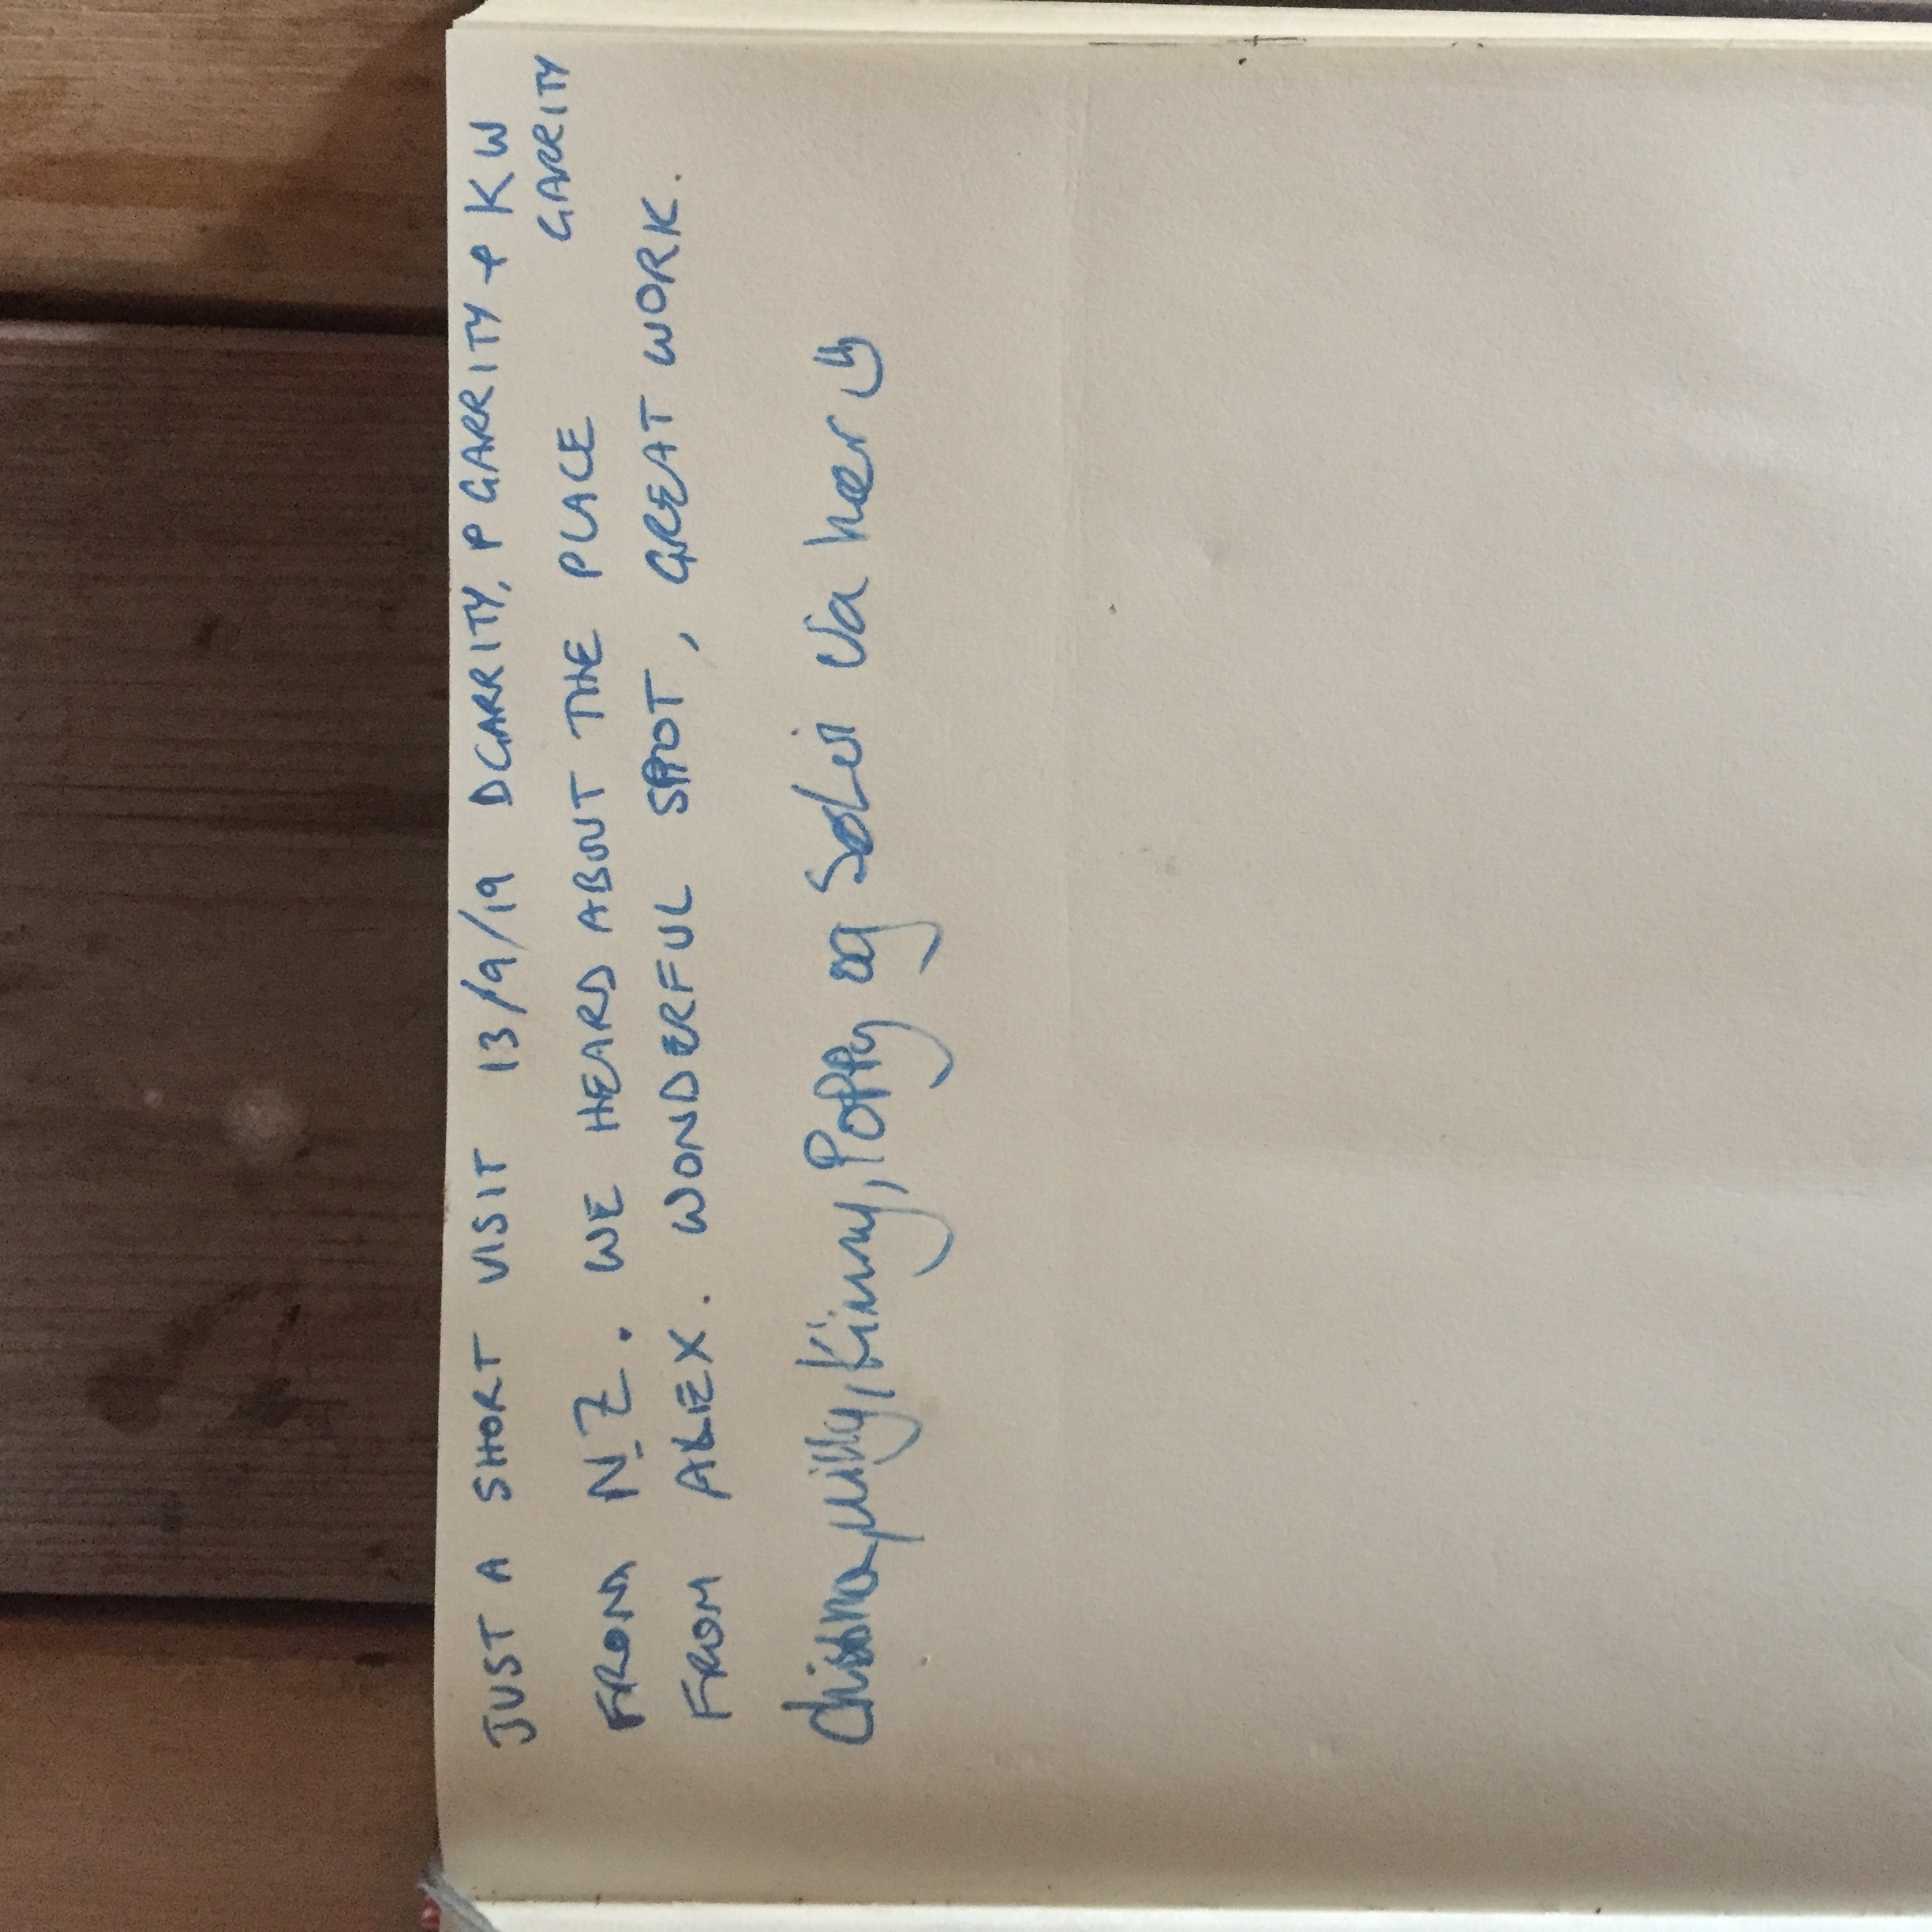 JUST A SHORT VISIT 13/9/19 D GARRITY, P GARRITY + K W
GARRITY
FROM N.Z. WE HEARD ABOUT THE PLACE
FROM ALEX. WONDERFUL SPOT, GREAT WORK.
Milly, Kinny, Poppy og Solei va her